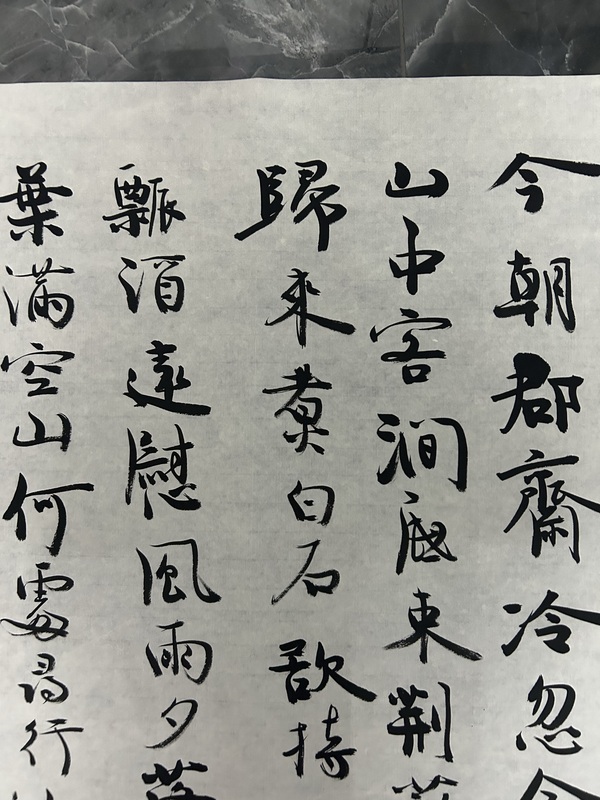 今朝郡齋冷忽
山中客澗底束荊
歸來煮白石欲持
瓢酒遠慰風雨夕落
葉滿空山何處尋行